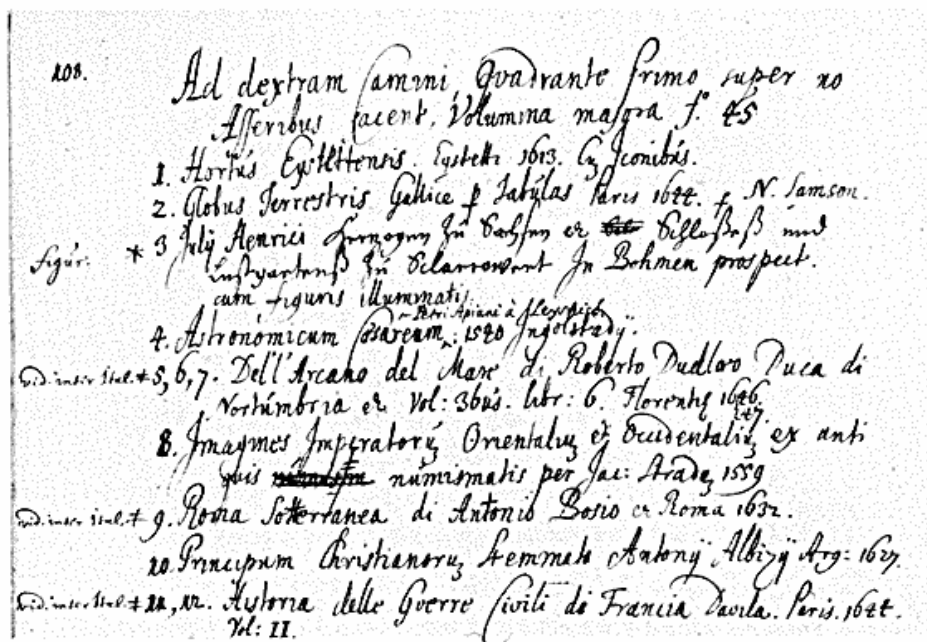 208.
Ad dextram Camini, Quadrante primo super no
Asseribus jacent. Volumina majora f.º 45
1. Hortus Eystettensis. Eystetti 1613. Cũ Iconibus.
2. Globus Terrestris Gallice p Tabulas Paris 1644. p N. Samson.
Figur. * 3 Julij Henrici Hertzogen zu Sachsen &c Schloßeß und
Lustgartenß zu Sclarrowert In Behmen prospect.
cum figuris illuminatis
Petri Apiani à Leysnick
4. Astronomicum Cæsareum: 1540 Ingolstadij.
vid. inter Ital. + 5, 6, 7. Dell'Arcano del Mare di Roberto Dudleo Duca di
Nortumbria &c Vol: 3bus. libr: 6. Florentiæ 1646.
1647.
8. Imagines Imperatorũ Orientaliũ et Occidentaliũ ex anti
quis numismatis per Jac: Strada 1559
vid. inter Ital. + 9. Roma Sotterranea di Antonio Bosio &c Roma 1632.
10. Principum Christianorũ Stemmata Antonij Albizij Arg: 1627.
vid. inter Ital. + 11, 12. Historia delle Guerre Civili di Francia Davila. Paris. 1644.
Vol: II.